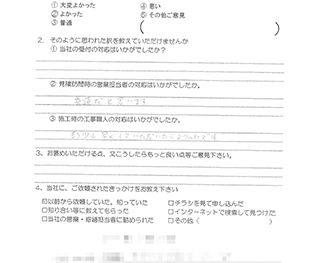 ① 大変よかった ④ 悪い
② よかった ⑤ その他ご意見
③ 普通 ( 
2. そのように思われた訳を教えていただけませんか
① 当社の受付の対応はいかがでしたか?
② 見積訪問時の営業担当者の対応はいかがでしたか。
普通だと思います
③ 施工時の工事職人の対応はいかがでしたか。
3、お褒めいただける点、又こうしたらもっと良い点等ご意見下さい。
4、当社に、ご依頼されたきっかけをお教え下さい
☑以前から依頼していた、知っていた □チラシを見て申し込んだ
□知り合い等に教えてもらった □インターネットで検索して見つけた
□当社の営業・ に勧められた □その他 ( )